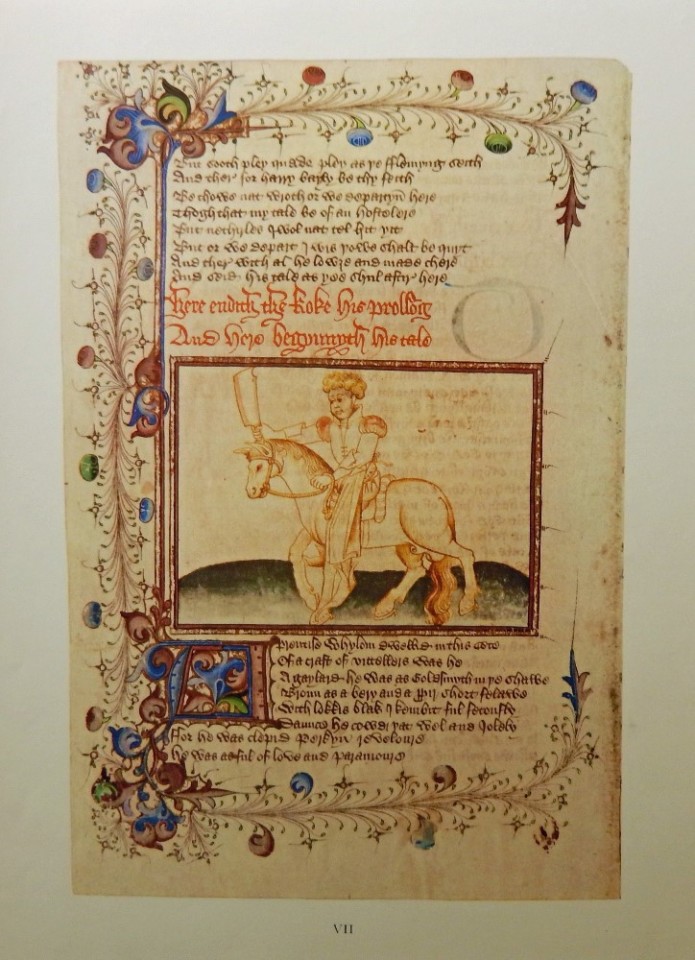 But sooth pley quade pley as þe fflemyng seith
And ther for harry bayly be thy feith
Be thowe nat wroth or we departyn here
Thogh that my tale be of an hostelere
But natheles I wol nat tel hit yit
But or we depart I wis yowe shalt be quit
And ther with al he lowze and made chere
And seid his tale as yoe shul aftir here
Here endith the Koke his prollog
And Here begynnyth his tale
A Prentise Whylom dwellid in this Cete
Of a craft of vitollers was he
A gaylard he was as Goldfynch in þe shawe
Broun as a bery and a short felawe
With lokkis blak I kembit ful fetously
Daunce he cowde þat wel and Jolely
For he was clepid Perkyn revelour
he was as ful of love and paramour
VII